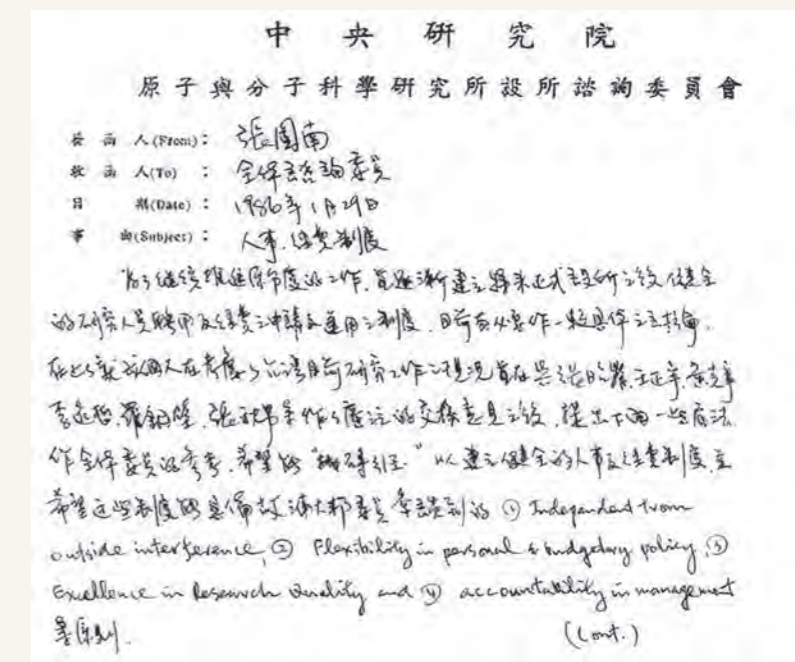 中央研究院
原子與分子科學研究所設所諮詢委員會
發函人(From)： 張圖南
收函人(To)： 全體諮詢委員
日期(Date)： 1986年1月29日
事由(Subject)： 人事、經費制度
為了繼續推進原分所的工作，並逐漸建立將來正式設所之後健全
的研究人員聘用及經費之申請及運用之制度，目前有必要作一較具體之討論。
在此就我個人在考慮了台灣目前研究工作之現況
李遠哲、張秋男 作了廣泛的交換意見之後，提出下面一些看法
作全體委員的參考，希望能"拋磚引玉"以建立健全的人事及經費制度，並
希望這些制度能具備 浦大邦委員常談到的 ① Independent from
outside interference, ② Flexibility in personal & budgetary policy, ③
Excellence in Research Quality and ④ accountability in management
等原則. (Cont.)